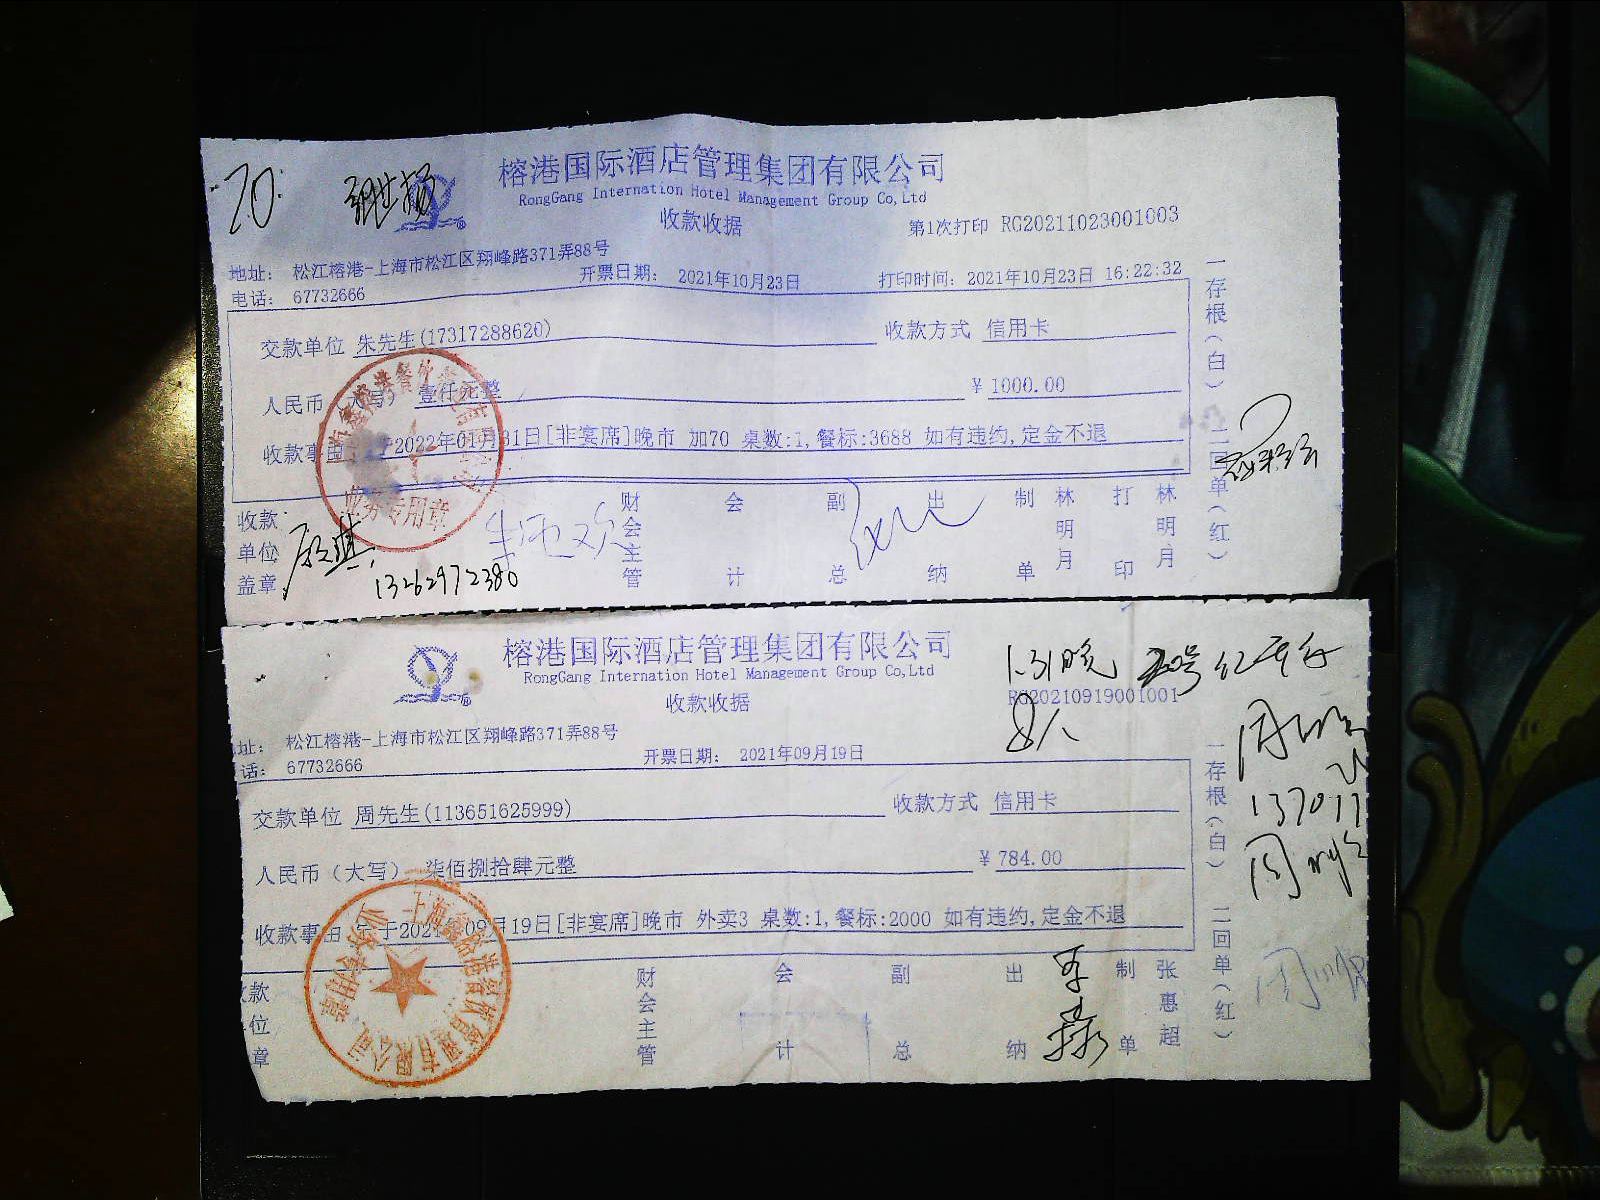 70
榕港国际酒店管理集团有限公司
RongGang Internation Hotel Management Group Co,Ltd
收款收据
第1次打印 RG20211023001003
地址: 松江榕港-上海市松江区翔峰路371弄88号
电话: 67732666
开票日期: 2021年10月23日
打印时间: 2021年10月23日 16:22:32
交款单位 朱先生(17317288620)
收款方式 信用卡
人民币(大写) 壹仟元整
¥ 1000.00
收款事由 于2022年01月31日[非宴席]晚市 加70 桌数:1,餐标:3688 如有违约,定金不退
一存根(白) 二回单(红)
收款单位盖章
业务专用章
13262972380
财会主管
会计
副总
出纳
制单 林明月
打印 林明月
榕港国际酒店管理集团有限公司
RongGang Internation Hotel Management Group Co,Ltd
收款收据
1.31晚
RG20210919001001
8人
址: 松江榕港-上海市松江区翔峰路371弄88号
话: 67732666
开票日期: 2021年09月19日
交款单位 周先生(113651625999)
收款方式 信用卡
人民币(大写) 柒佰捌拾肆元整
¥ 784.00
收款事由 于2021年09月19日[非宴席]晚市 外卖3 桌数:1,餐标:2000 如有违约,定金不退
一存根(白) 二回单(红)
137017
款位章
业务专用章
财会主管
会计
副总
出纳
制单 张惠超